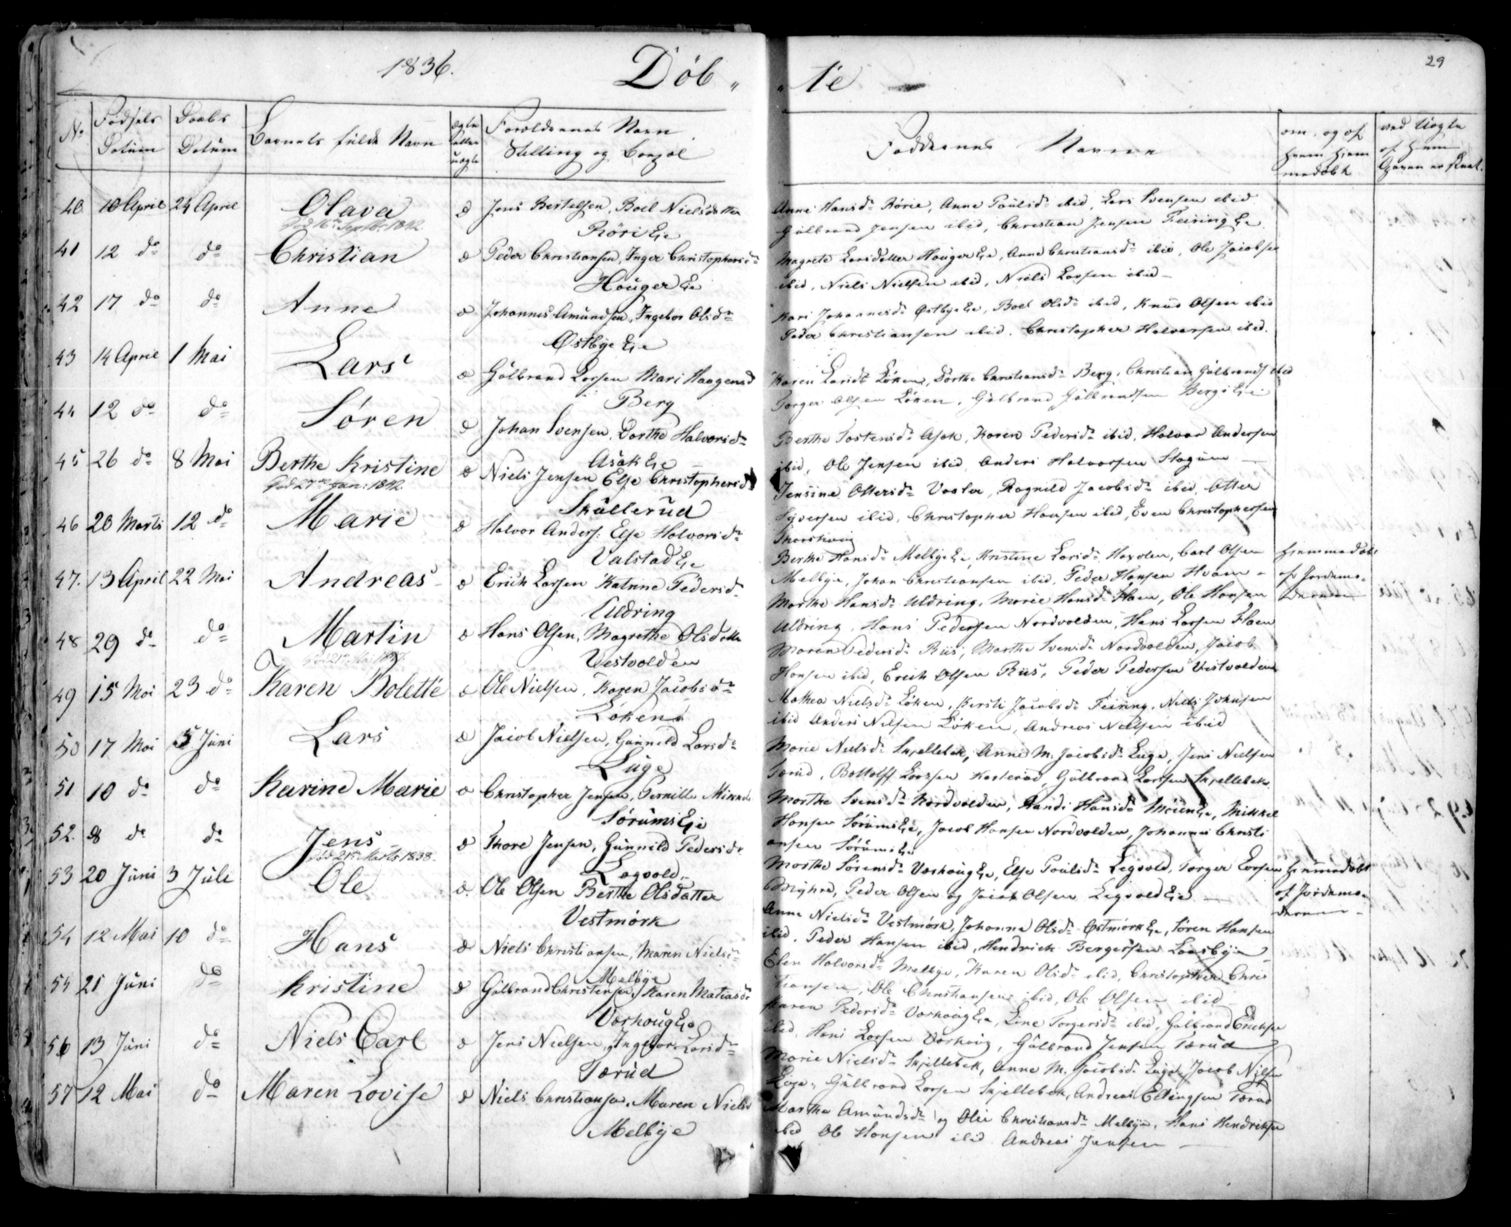 1836. Døb " " te 29
No Fødsels Datum Daabs Datum Barnets fulde Navn Forældrenes Navn Stilling og Faddernes Navne om og af hvem hjemmedøbt
40 10 April 24 April Olava Jens Bertelsen, Boel Nielsdatter
Røri Eie
Anne Hansd. Rørie, Anne Paulsd. ibid, Lars Svensen ibid
Gulbrand Jensen ibid, Christian Jensen Teiring Eie
41 12 do do Christian Peder Christiansen, Inger Christophersd.
Houger Eie
Magrete Larsdatter Houger Eie, Anne Christiansd. ibid, Ole Jacobsen
ibid, Niels Nielsen ibid, Niels Larsen ibid
42 17 do do Anne Johannes Amundsen, Ingebor Olsd.
Østbye Eie
Kari Johannesd. Østbye Eie, Boel Olsd. ibid, Knud Olsen ibid
Peder Christiansen ibid, Christopher Halvorsen ibid.
43 14 April 1 Mai Lars Gulbrand Larsen Mari Haagensd
Berg
Karen Larsd. Løken, Dorthe Christiansd. Berg, Christian Gulbrands. ibid
Torger Olsen Løken, Gulbrand Gulbrandsen Bergs Eie
44 12 do do Søren Johan Svensen, Dorthe Halvorsd.
Asak Eie
Berthe Tostensd. Asak, Karen Pedersd. ibid, Halvor Andersen
ibid, Ole Jensen ibid, Anders Halvorsen
45 26 do 8 Mai Berthe Kristine Niels Jensen Else Christophersd
Skullerud
Jensine Ottersd. Vaster, Ragnild Jacobsd. ibid, Otter
Syversen ibid, Christopher Hansen ibid, Even Christophersen
46 20 Marts 12 do Marie Halvor Anders: Else Halvorsd.
Valstad Eie
Berthe Hansd. Melbye Eie, Kristine Larsd. Carl Olsen
Melbye, Johan Christiansen ibid, Peder Hansen Hvam
hjemmedøbt
af Jordemo-
deren
47. 13 April 22 Mai Andreas Erik Larsen Pedersd.
Uldring
Marthe Hansd. Uldring, Marie Hansd. Ole Hansen
Uldring, Hans Pedersen Nordvolden, Hans Larsen
48 29 do do Martin Hans Olsen, Magrethe Olsdatter
Vestvolden
Maren Pedersd. Riis, Marthe Svensd. Nordvolden, Jacob
Hansen ibid, Erik Olsen Riis, Peder Pedersen Vestvolden
49 15 Mai 23 do Karen Bolette Ole Nielsen, Karen Jacobsd.
Løken
Mathea Nielsd. Løken, Kersti Jacobsd. Teiring, Niels Johnsen
ibid Anders Nilsen Løken, Andreas Nielsen ibid
50 17 Mai 5 Juni Lars Jacob Nielsen, Gunnild Larsd.
Luge
Marie Nielsd. Skjellebek, Anne M. Jacobsd. Luge, Jens Nielsen
Tærud, Bottolf Larsen Gulbrand Larsen Skjellebek
51 10 do do Karine Marie Christopher Jensen, Pernille
Sørums Eie
Marthe Svensd. Nordvolden, Randi Hansd. Mikkel
Hansen Sørums Eie, Jacob Hansen Nordvolden, Johannes Christi
ansen Sørums Eie
52. 8 do do Jens Thore Jensen, Gunnild Pedersd.
Legvold
Marthe Sørensd. Varhoug Eie, Else Paulsd. Legvold, Torger Larsen
Peder Olsen og Jacob Olsen Legvold Eie
hjemmedøbt
af Jordemo-
deren
53 20 Juni 3 Jule Ole Ole Olsen Berthe Olsdatter
Vestmork
Anne Nielsd. Vestmork, Johanne Olsd. Østmork Eie, Søren Hansen
ibid, Peder Hansen ibid, Hendrich Bergersen
54 12 Mai 10 do Hans Niels Christiansen, Maren Nielsd
Melbye
Halvorsd. Melbye, Karen Olsd. ibid, Christopher Chris-
tiansen, Ole Christiansen ibid, Ole Olsen ibid
55 21 Juni do Kristine Gulbrand Christensen, Karen Matiasd.
Varhoug Eie
Karen Pedersd. Varhoug Eie, Lene Torgersd. ibid, Gulbrand Ericksen
ibid, Hans Larsen Varhoug, Gulbrand Jensen Tærud
56 13 Juni do Niels Carl Jens Nielsen, Ingebor Larsd.
Tærud
Marie Nielsd. Skjellebek, Anne M. Jacobsd. Luge Jacob Nilsen
Luge, Gulbrand Larsen Skjellebek, Andreas Ellingsen Tærud
57 12 Mai do Maren Lovise Niels Christiansen, Maren Nielsd
Melbye
Marthe Amundsd. og Olea Christiansd. Melbye, Hans Hendriksen
ibid Ole Hansen ibid, Andreas Jensen